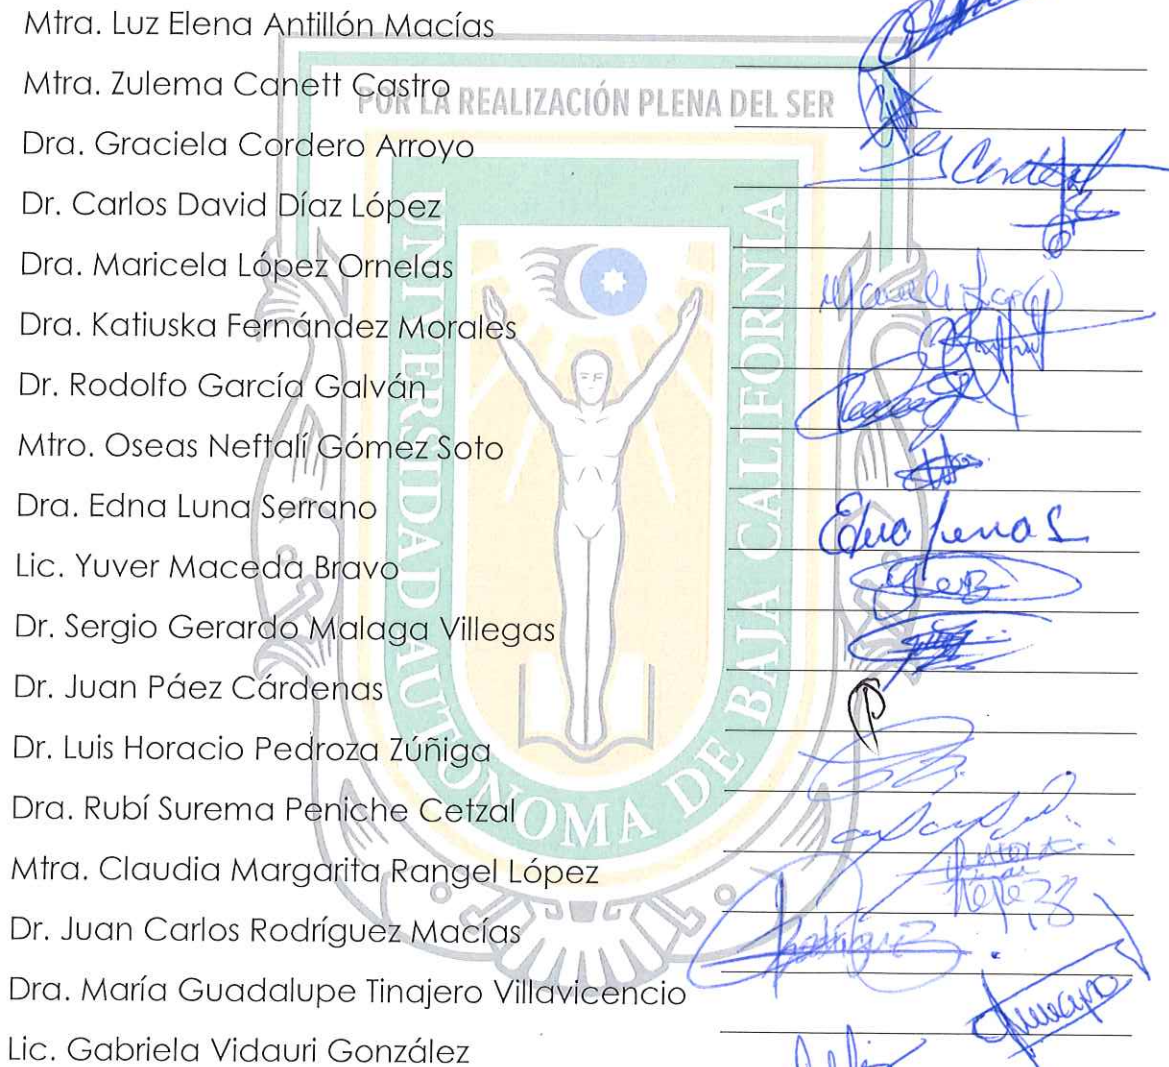 Mtra. Luz Elena Antillón Macías
Mtra. Zulema Canett Castro
POR LA REALIZACIÓN PLENA DEL SER
Dra. Graciela Cordero Arroyo
Dr. Carlos David Díaz López
Dra. Maricela López Ornelas
Dra. Katiuska Fernández Morales
Dr. Rodolfo García Galván
Mtro. Oseas Neftalí Gómez Soto
Dra. Edna Luna Serrano
Edna Luna S
Lic. Yuver Maceda Bravo
Dr. Sergio Gerardo Malaga Villegas
Dr. Juan Páez Cárdenas
Dr. Luis Horacio Pedroza Zúñiga
Dra. Rubí Surema Peniche Cetzal
Mtra. Claudia Margarita Rangel López
Dr. Juan Carlos Rodríguez Macías
Dra. María Guadalupe Tinajero Villavicencio
Lic. Gabriela Vidauri González
UNIVERSIDAD AUTÓNOMA DE BAJA CALIFORNIA